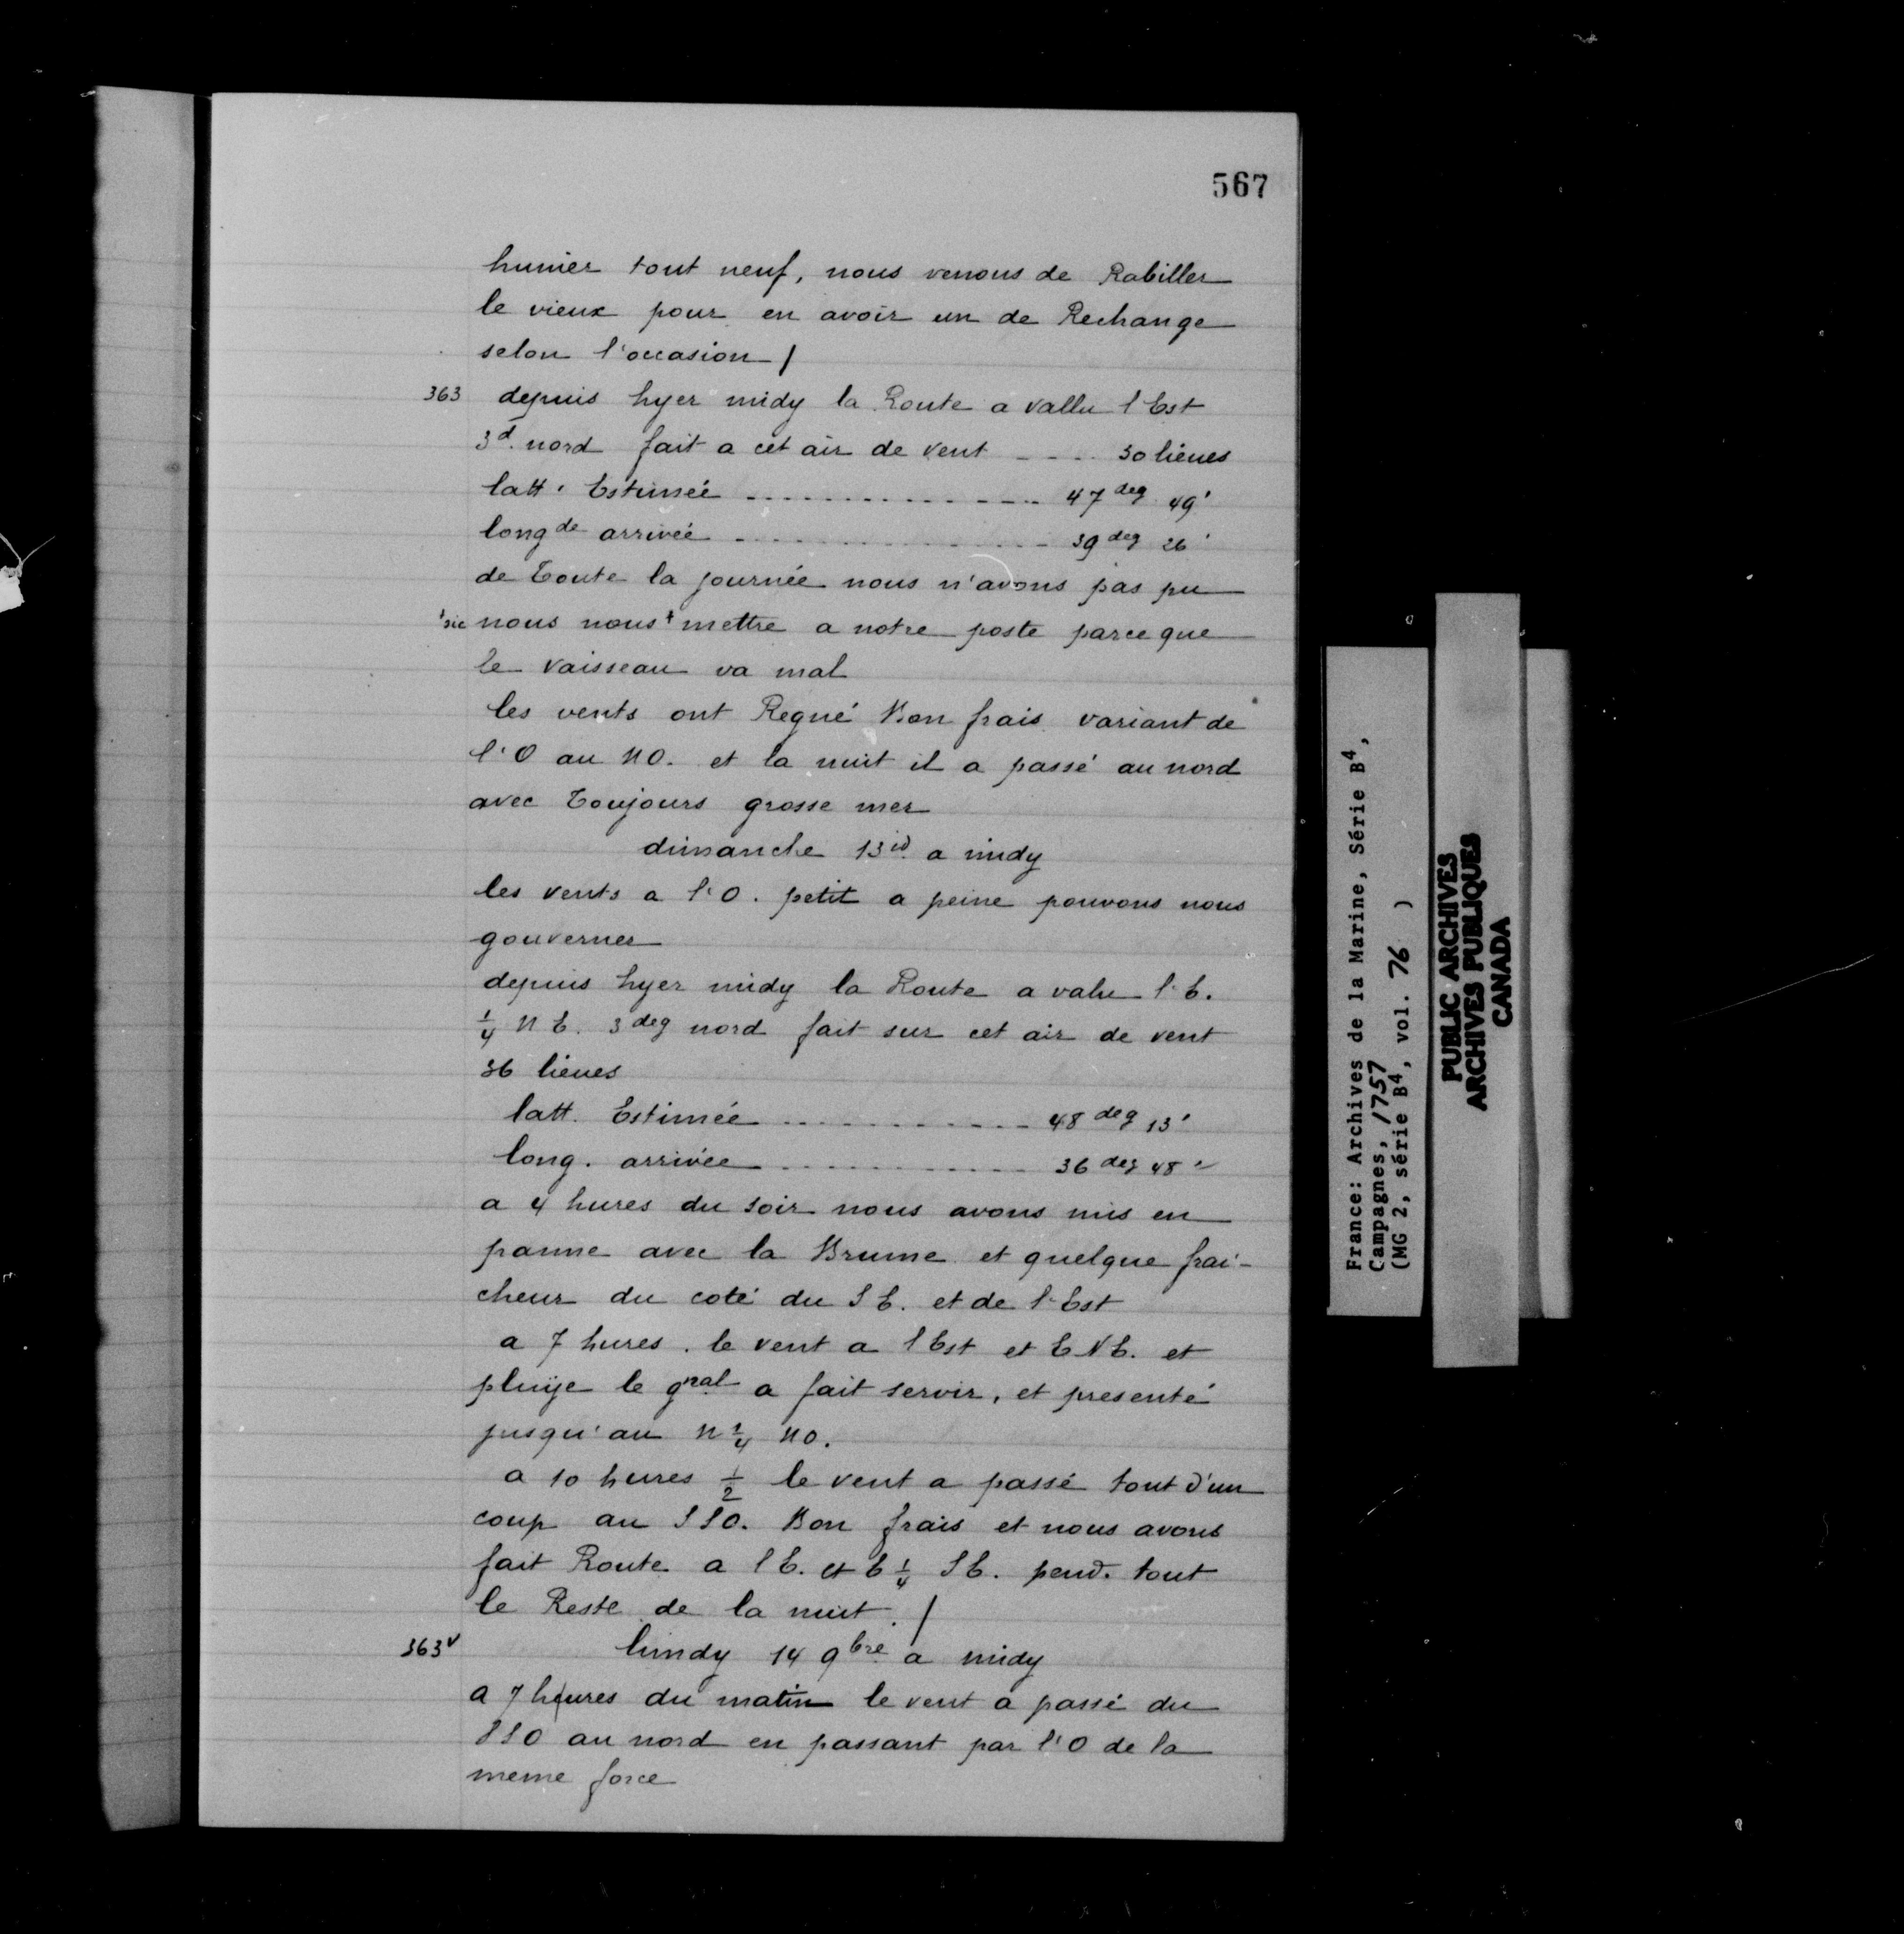 567
hunier tout neuf, nous venons de Rabiller
le vieux pour en avoir un de Rechange
selon l'occasion /
363 depuis hyer midy la Route a vallu l Est
3d. nord fait a cet air de vent - - - . 30 lieues
latt. Estimée - - - - - - - - - - - - - 47 deg 49'
longde arrivée - - - - - - - - - - - - - 39 deg 26'
de Toute la journée nous n'avons pas pu
+sic nous nous+ mettre a notre poste parce que
le vaisseau va mal
les vents ont Regné Bon frais variant de
l'O au NO. et la nuit il a passé au nord
avec Toujours grosse mer
dimanche 13 id. a midy
les vents a l'O. petit a peine pouvons nous
gouverner
depuis hyer midy la Route a valu l'E.
1/4 N E. 3 deg nord fait sur cet air de vent
36 lieues
latt. Estimée - - - - - - - - - - - 48 deg 13'
long. arrivée - - - - - - - - - - - 36 deg 48'
a 4 hures du soir nous avons mis en
panne avec la Brume et quelque frai-
cheur du coté du S E. et de l'Est
a 7 hures. le vent a l Est et E N E. et
pluije le gnal a fait servir, et presenté
jusqu'au N 1/4 NO.
a 10 hures 1/2 le vent a passé tout d'un
coup au SSO. Bon frais et nous avons
fait Route a l E. et E 1/4 S E. pend. tout
le Reste de la nuit. /
363v lundy 14 9bre a midy
a 7 heures du matin le vent a passé du
SSO au nord en passant par l'O de la
meme force
France: Archives de la Marine, Série B4,
Campagnes, 1757
(MG 2, série B4, vol. 76 )
PUBLIC ARCHIVES
ARCHIVES PUBLIQUES
CANADA